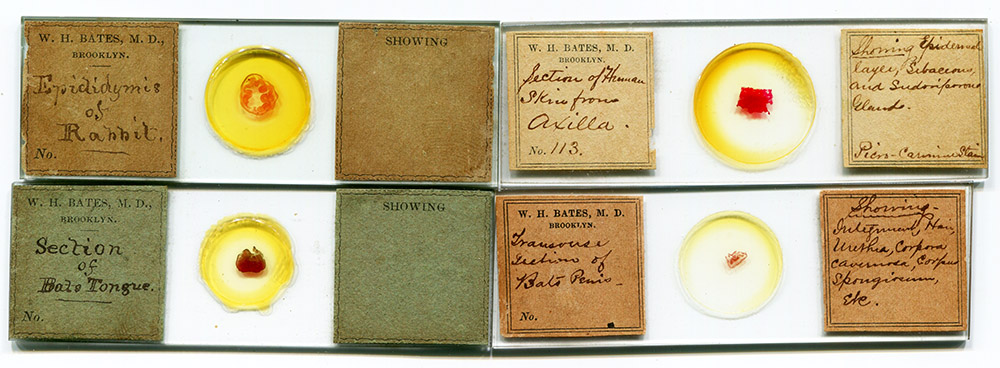 W. H. BATES, M. D.,
BROOKLYN.
Epididymis
of
Rabbit.
No.
SHOWING
W. H. BATES, M. D.
BROOKLYN.
Section of Human
Skin from
Axilla.
No. 113.
Showing Epidermal
layer, Sibaceous,
and Sudoriporous
Glands.
Picro-Carmine Stain
W. H. BATES, M. D.,
BROOKLYN.
Section
of
Bats Tongue.
No.
SHOWING
W. H. BATES, M. D.
BROOKLYN.
Transverse
Section of
Bats Penis-
No.
Showing-
Integument, Hair,
Urethra, Corpora
Cavernosa, Corpus
Spongiosum,
Etc.